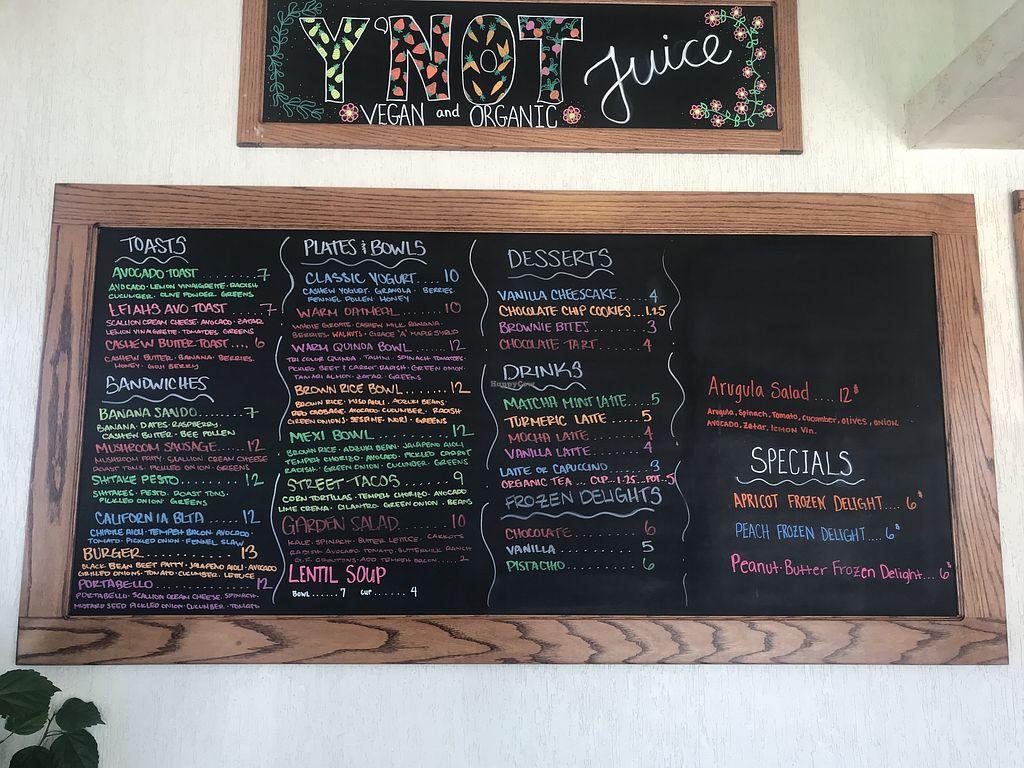 Y'NOT Juice
VEGAN and ORGANIC
TOASTS
AVOCADO TOAST ........ 7
AVOCADO · LEMON VINAIGRETTE · RADISH
CUCUMBER · OLIVE POWDER · GREENS
LEIAHS AVO TOAST ...... 7
SCALLION CREAM CHEESE · AVOCADO · ZATAR
LEMON VINAIGRETTE · TOMATOES · GREENS
CASHEW BUTTER TOAST.... 6
CASHEW BUTTER · BANANA · BERRIES
HONEY · GOJI BERRY
SANDWICHES
BANANA SANDO ........ 7
BANANA · DATES · RASPBERRY
CASHEW BUTTER · BEE POLLEN
MUSHROOM SAUSAGE ..... 12
MUSHROOM PATTY · SCALLION CREAM CHEESE
ROAST TOMS · PICKLED ONION · GREENS
SHITAKE PESTO ........ 12
SHIITAKES · PESTO · ROAST TOMS ·
PICKLED ONION · GREENS
CALIFORNIA BLTA ..... 12
CHIPOTLE AIOLI · TEMPEH BACON · AVOCADO ·
TOMATO · PICKLED ONION · FENNEL SLAW
BURGER ............ 13
BLACK BEAN BEET PATTY · JALAPENO AIOLI · AVOCADO
GRILLED ONIONS · TOMATO · CUCUMBER · LETTUCE
PORTABELLO .......... 12
PORTABELLO · SCALLION CREAM CHEESE · SPINACH ·
MUSTARD SEED PICKLED ONION · CUCUMBER · TOMATO
PLATES & BOWLS
CLASSIC YOGURT .... 10
CASHEW YOGURT · GRANOLA · BERRIES
FENNEL POLLEN · HONEY
WARM OATMEAL ...... 10
WHOLE GROATS · CASHEW MILK · BANANA ·
BERRIES · WALNUTS · GRADE "A" MAPLE SYRUP
WARM QUINOA BOWL ... 12
TRI COLOR QUINOA · TAHINI · SPINACH · TOMATOES ·
PICKLED BEET & CARROT · RADISH · GREEN ONION ·
TAMARI ALMON · ZATAR · GREENS
BROWN RICE BOWL ..... 12
BROWN RICE · MISO AIOLI · ADZUKI BEANS
RED CABBAGE · AVOCADO · CUCUMBER · RADISH
GREEN ONIONS · SESAME · NORI · GREENS
MEXI BOWL .......... 12
BROWN RICE · ADZUKI BEAN · JALAPENO AIOLI
TEMPEH CHORIZO · AVOCADO · PICKLED CARROT
RADISH · GREEN ONION · CUCUMBER · GREENS
STREET TACOS ....... 9
CORN TORTILLAS · TEMPEH CHORIZO · AVOCADO
LIME CREMA · CILANTRO · GREEN ONION · BEANS
GARDEN SALAD ....... 10
KALE · SPINACH · BUTTER LETTUCE · CARROTS
RADISH · AVOCADO · TOMATO · BUTTERMILK RANCH
CROUTONS · ADD TEMPEH BACON .... 2
LENTIL SOUP
BOWL ...... 7 CUP ...... 4
DESSERTS
VANILLA CHEESCAKE .... 4
CHOCOLATE CHIP COOKIES...1.25
BROWNIE BITES ....... 3
CHOCOLATE TART ...... 4
DRINKS
MATCHA MINT LATTE .... 5
TURMERIC LATTE ...... 5
MOCHA LATTE ........ 4
VANILLA LATTE ....... 4
LATTE OR CAPUCCINO ... 3
ORGANIC TEA ... CUP...1.25...POT..5
FROZEN DELIGHTS
CHOCOLATE ......... 6
VANILLA ........... 5
PISTACHIO ......... 6
Arugula Salad .... 12$
Arugula, Spinach, Tomato, cucumber, olives, onion,
Avocado, Zatar, lemon Vin.
SPECIALS
APRICOT FROZEN DELIGHT.... 6$
PEACH FROZEN DELIGHT.... 6$
Peanut Butter Frozen Delight... 6$
HappyCow